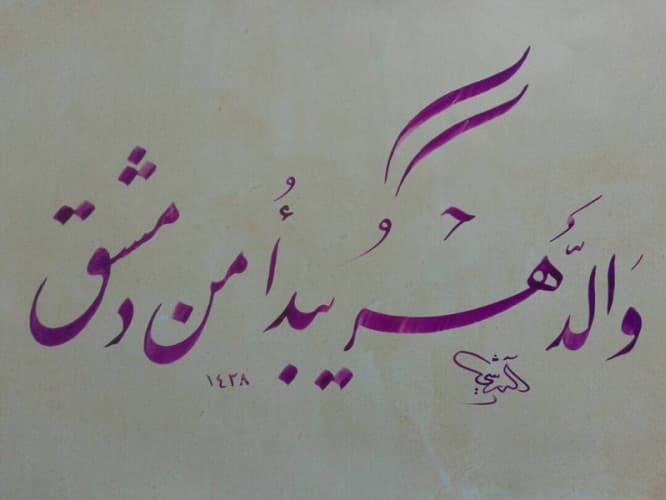 وَالدَّهرُ يبدأُ من دمشق
١٤٣٨